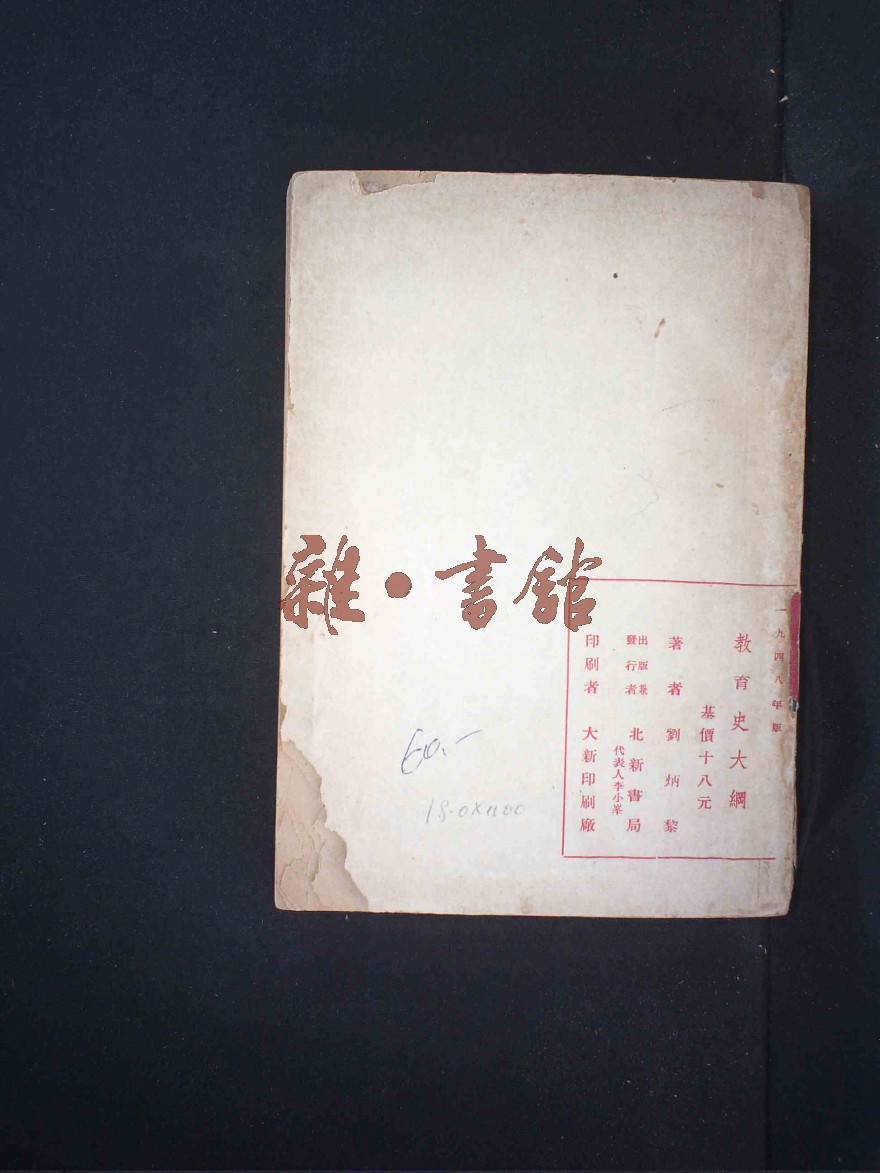 一九四八年版
教育史大綱
基價十八元
著者 劉炳黎
出版兼
發行者 北新書局
代表人李小峯
印刷者 大新印刷廠
雜·書館
60.-